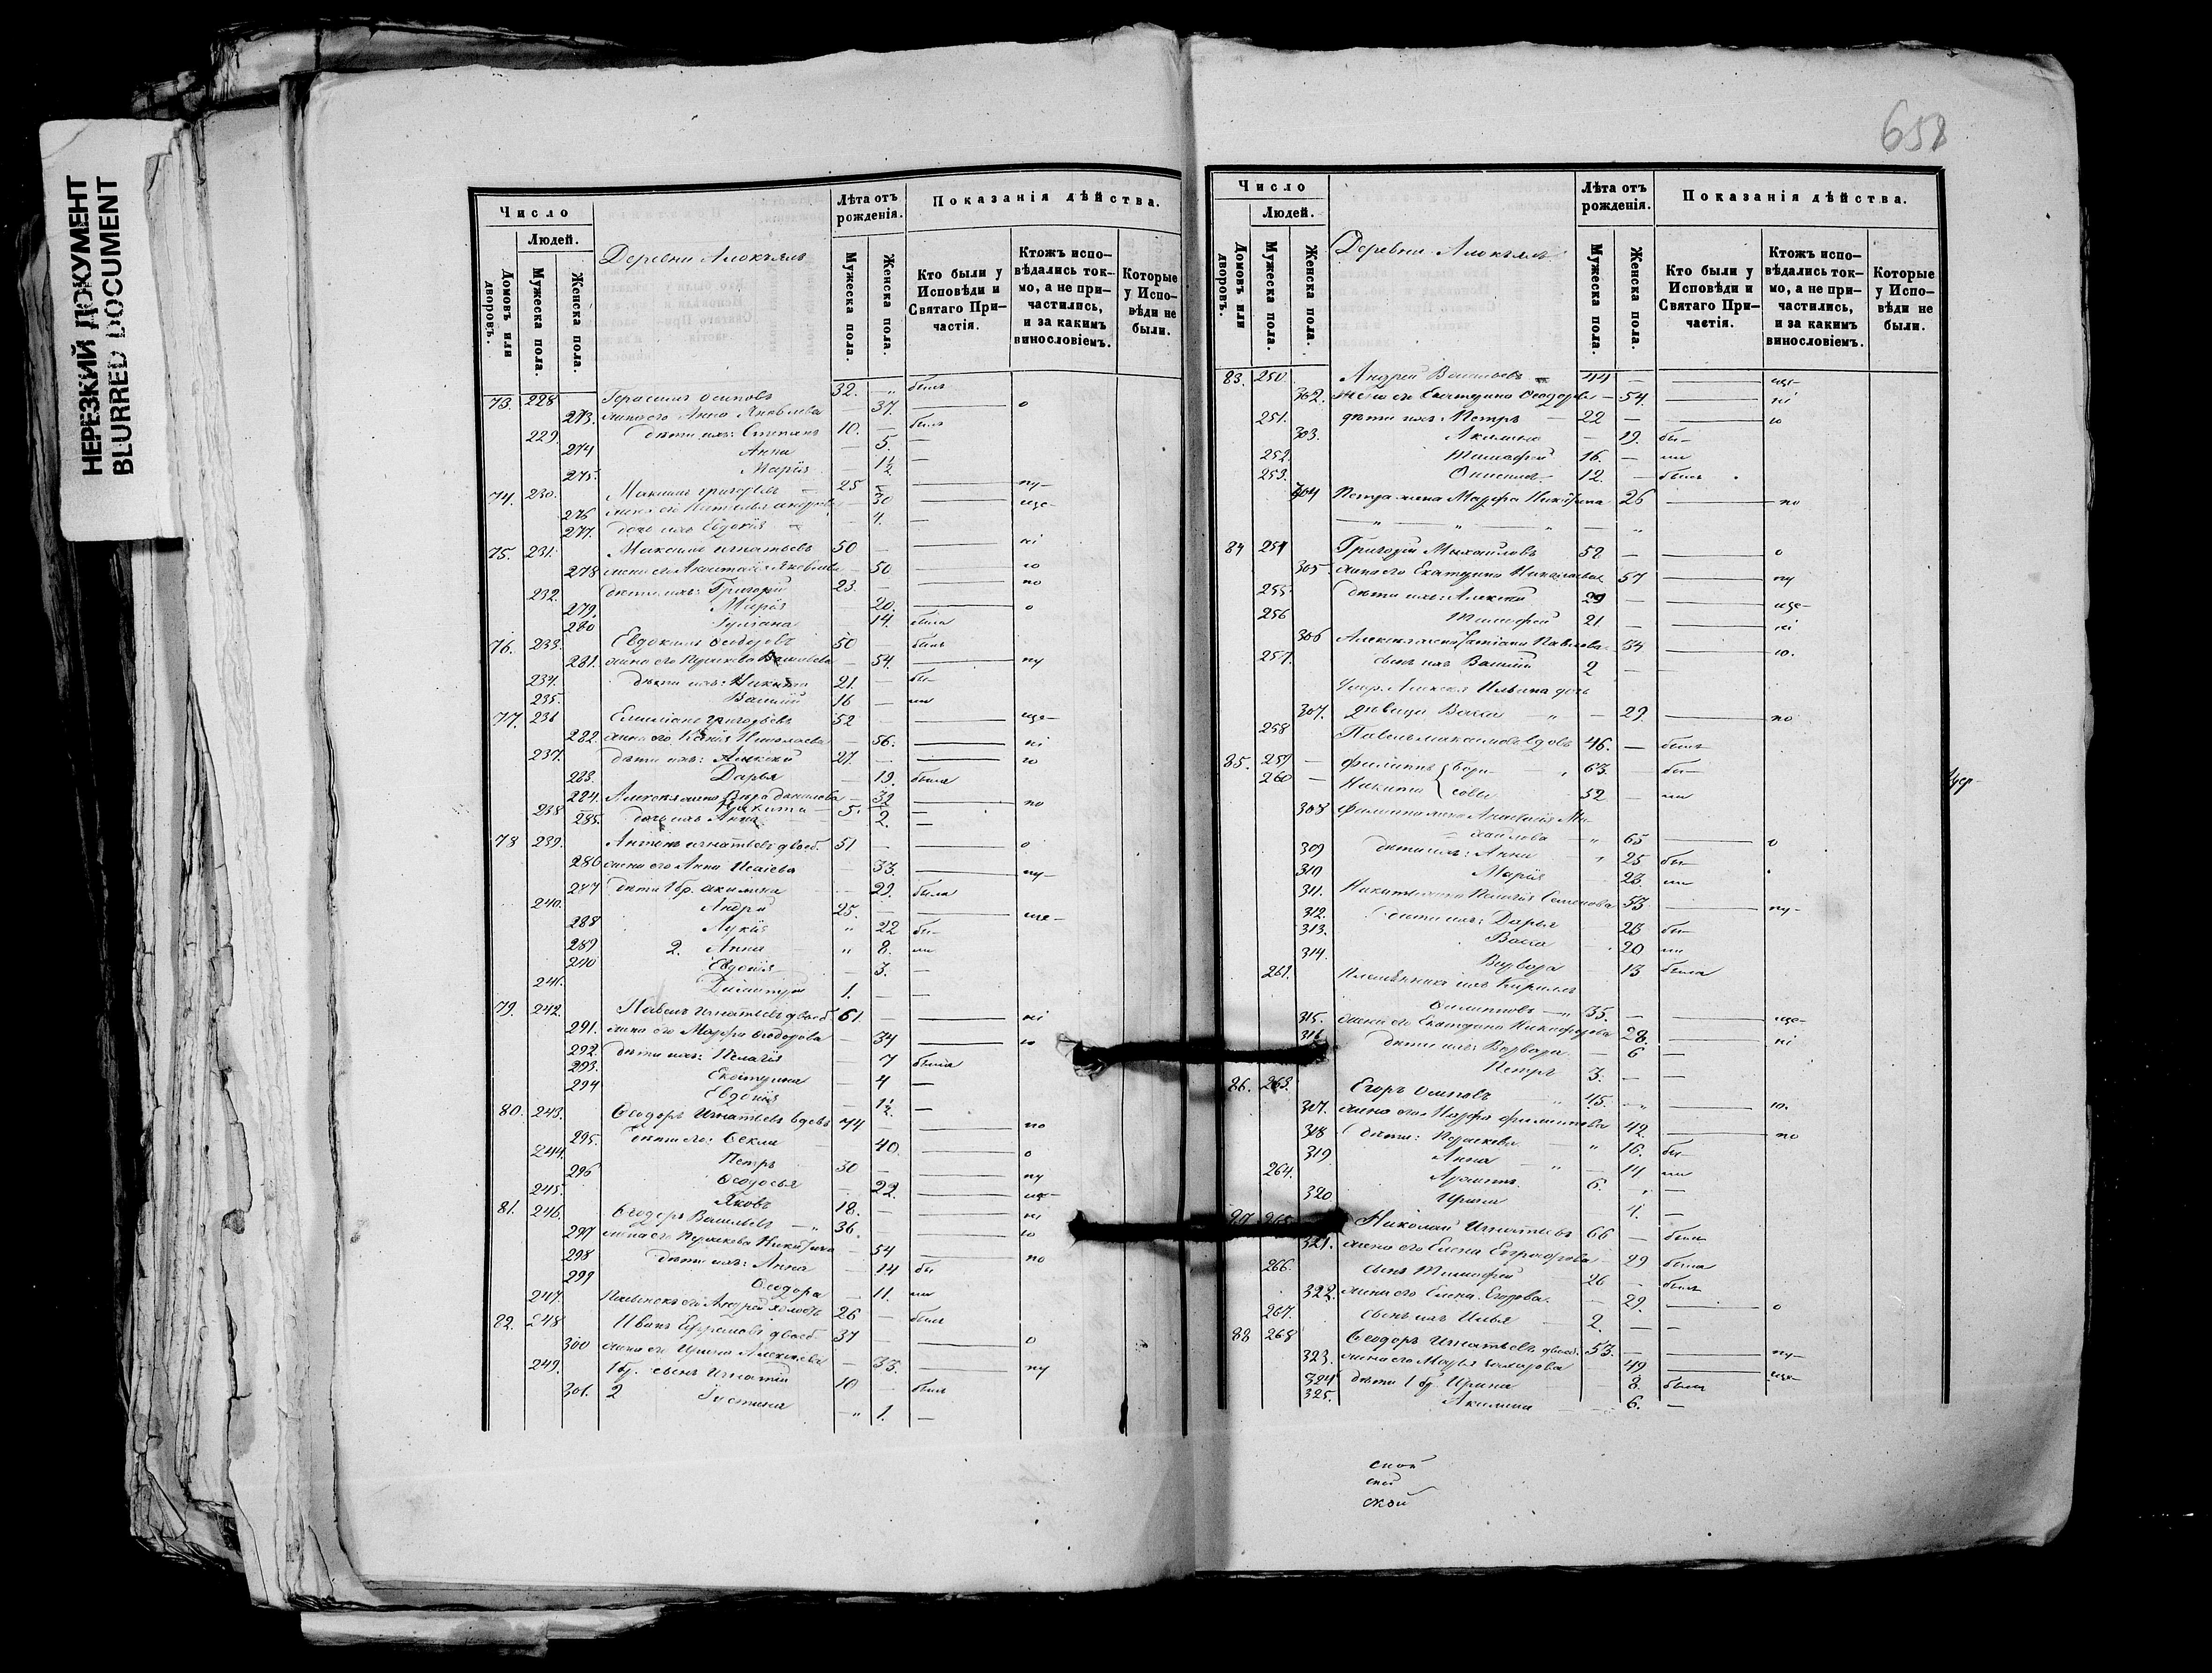 НЕРЕЗКИЙ ДОКУМЕНТ
BLURRED DOCUMENT
Число
Людей.
Домовъ или дворовъ.
Мужеска пола.
Женска пола.
Деревни
Лѣта отъ рожденія.
Мужеска пола.
Женска пола.
Показанія дѣйства.
Кто были у Исповѣди и Святаго Причастія.
Ктожъ исповѣдались токмо, а не причастились, и за какимъ винословіемъ.
Которые у Исповѣди не были.
73. 228 Герасимъ Осиповъ 32. — былъ
273. жена его Анна Яковлева — 37. — о
229. дѣти ихъ: Степанъ 10. — былъ
274 Анна — 5. —
275. Марія — 1½ —
74. 230. Максимъ Григорьевъ 25 — — пу—
276 жена его Наталья — 30 — ще—
277. дочь ихъ Евдокія — 4. —
75. 231. Максимъ Игнатьевъ 50 — — ні
278 жена его Яковлева — 50 — ю
232. дѣти ихъ: Григорій 23. — по
279. Марія 20. — о
280 Іуліана — 14. была
76. 233. Евдокимъ Ѳеодоровъ 50 былъ
281. жена его — 54. — пу
234. дѣти ихъ: Никита 21. — бы—
235. Василій 16 — ли
77. 236 Емиліанъ Григорьевъ 52 — — ще—
282. жена его Ксенія Николаева — 56. — ні
237. дѣти ихъ: Алексѣй 27. — — ю
283. Дарья — 19. была
284. Алексѣя жена Данилова — 32 — по
238 Никита — 5. —
285. дочь ихъ Анна 2. —
78 239. Антонъ Игнатьевъ двоеб. 51. — — о
286 жена его Анна Исаіева — 33. — пу—
287 дѣти 1 бр. Акилина — 29. была
240. Андрей 25. — — ще—
288 Лукія " 22 бы—
289 2. Анна — " 8. ли
290 Евдокія — 3. —
241. Димитрій 1. — —
79. 242. Павелъ Игнатьевъ двоеб. 61. — — ні
291. жена его Марфа Ѳеодорова — 34 — ю
292. дѣти ихъ: Пелагія — 7 была
293. Екатерина — 4 —
294 Евдокія — 1½ —
80. 243. Ѳеодоръ Игнатьевъ вдовъ 74 — — по
295. дѣти его: Ѳекла — 40. — о
244. Петръ 30 — — пу
296 Ѳеодосья — 22. — ще—
245. Яковъ 18. — — ні
81. 246. Ѳеодоръ Васильевъ — " 36. — ю
297 жена его Никитина — 54 — по
298 дѣти ихъ: Анна — 14 бы
299 Ѳеодора — 11. ли
247. его Андрей холостъ 26 — былъ
82. 248 Иванъ Ефремовъ двоеб. 37 — — о
300 жена его Ирина Алексѣева — 33. — пу
249. 1 бр. сынъ Игнатій 10 — былъ
301. 2 Іустина — " 1. —
658
Число
Людей.
Домовъ или дворовъ.
Мужеска пола.
Женска пола.
Деревни
Лѣта отъ рожденія.
Мужеска пола.
Женска пола.
Показанія дѣйства.
Кто были у Исповѣди и Святаго Причастія.
Ктожъ исповѣдались токмо, а не причастились, и за какимъ винословіемъ.
Которые у Исповѣди не были.
83. 250. Андрей Васильевъ 44 — — ще—
302. жена его Екатерина Ѳеодорова — 54. — ні
251. дѣти ихъ: Петръ — 22 — — ю
303. Акилина — 19. бы—
252. Тимофей 16. — ли
253. Онисимъ 12. — былъ
304 Петра жена Марфа Никитина 26 — по
84 254 Григорій Михайловъ 52 — — о
305. жена его Екатерина Николаева 57 — пу
255. дѣти ихъ: Алексѣй 29 — — ще—
256 Тимофей 21. — — ні
306 Алексѣя жена Татіана Павлова 34 — ю.
257. сынъ ихъ Василій 2 —
Умер. Алексѣя Ильина дочь
307. дѣвица Васса — " — 29. — по
258 Павелъ Максимовъ вдовъ 46. — былъ
85. 259 — Филиппъ — " 63. бы—
260 — Никита 52. — ли
308 Филиппа жена Анастасія Михайлова — " 65 — о
309 дѣти ихъ: Анна " 25 бы—
310 Марія — 23. ли
311. Никиты жена Пелагія Семенова 53 — пу—
312. дѣти ихъ: Дарья — 23 бы—
313. Васса — " 20 ли
314. Варвара 13 была
261. Племянникъ ихъ Кириллъ
Филипповъ — " 35. — — ще—
315. жена его Екатерина Никифорова 28. — ні
316 дѣти ихъ: Варвара — 6 —
Петръ 3. — —
86. 263. Егоръ Осиповъ — " 45. — — ю.
317. жена его Марфа Филиппова 42 — по
318 дѣти: " 16. бы—
319 Анна — " — 14 ли
264. 6. " —
320 Ирина 4. —
87 265 Николай Игнатьевъ 66 — былъ
321. жена его Елена — 29 была
266. сынъ Тимофей 26 — былъ
322. жена его Елена Егорова. — 29. — о
267. сынъ ихъ Илья — 2. — —
88 268 Ѳеодоръ Игнатьевъ двоеб. 53. — — пу—
323. жена его Марья 49 — ще—
324 дѣти 1 бр. Ирина — 8. была
325. Акилина — 6. —
ской
ской